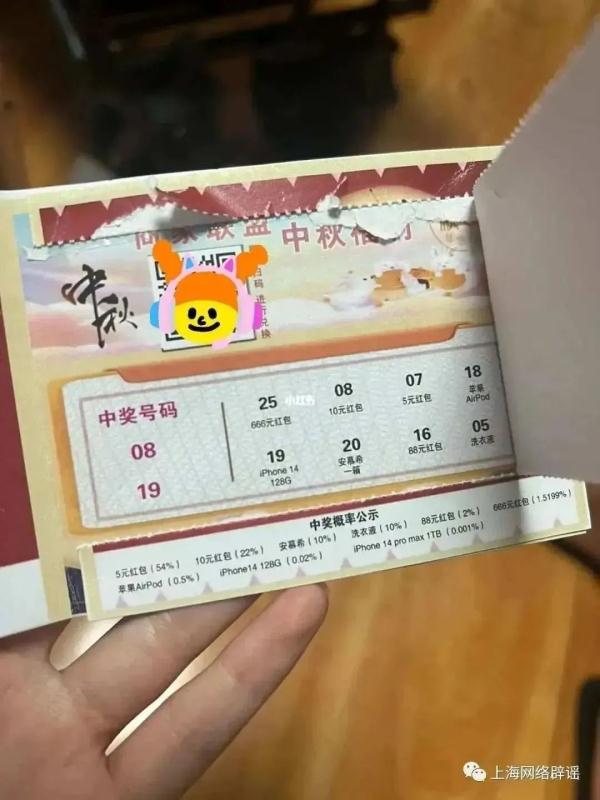 商家联盟 中秋福利
中秋
扫码 进行兑换
中奖号码
08
19
25
666元红包
08
10元红包
07
5元红包
18
苹果
AirPod
19
iPhone 14
128G
20
安慕希
一箱
16
88元红包
05
洗衣液
小红书
中奖概率公示
5元红包(54%) 10元红包(22%) 安慕希(10%) 洗衣液(10%) 88元红包(2%) 666元红包(1.5199%)
苹果AirPod(0.5%) iPhone14 128G(0.02%) iPhone 14 pro max 1TB(0.001%)
上海网络辟谣